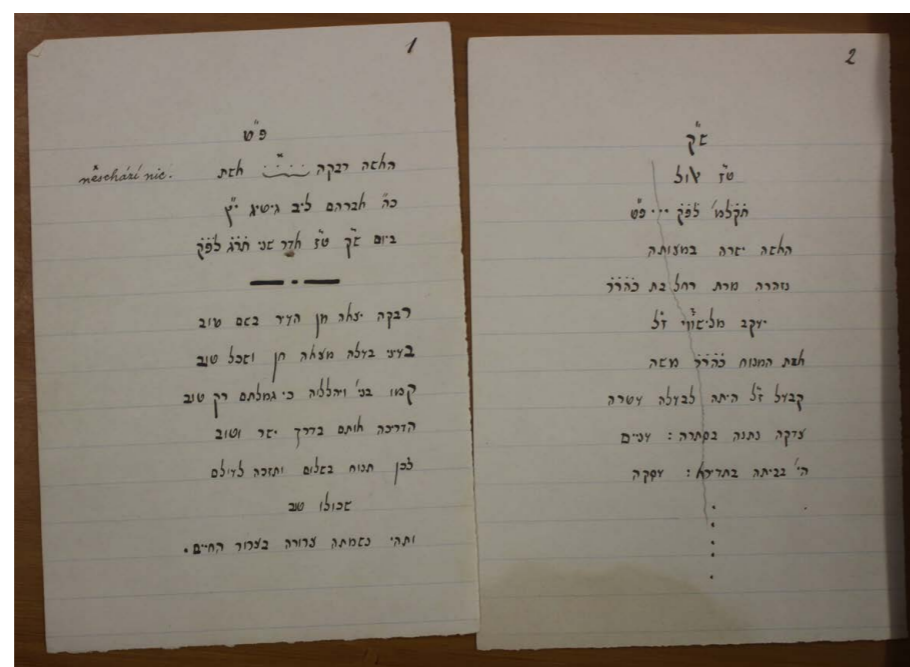 1
פ״ט
něschází nic. האשה רבקה ..... אשת
כה״ אברהם ליב גיטיג י״ץ
ביום ש״ק ט״ז אדר שני תרג לפק
רבקה יצאה מן העיר בשם טוב
בעיני בעלה מצאה חן ושכל טוב
קמו בני׳ ויהללוה כי גמלתם רק טוב
הדריכה אותם בדרך ישר וטוב
לכן תנוח בשלום ותזכה לעולם
שכולו טוב
ותהי נשמתה צרורה בצרור החיים.
2
ש״ק
ט״ז אלול
לפק ... פ״ט
האשה ישרה
נזהרה מרת רחל בת כהרר
יעקב ז״ל
אשת המנוח כהרר משה
ז״ל היתה לבעלה עטרה
צדקה נתנה בסתרה : עניים
הי׳ בביתה : עסקה